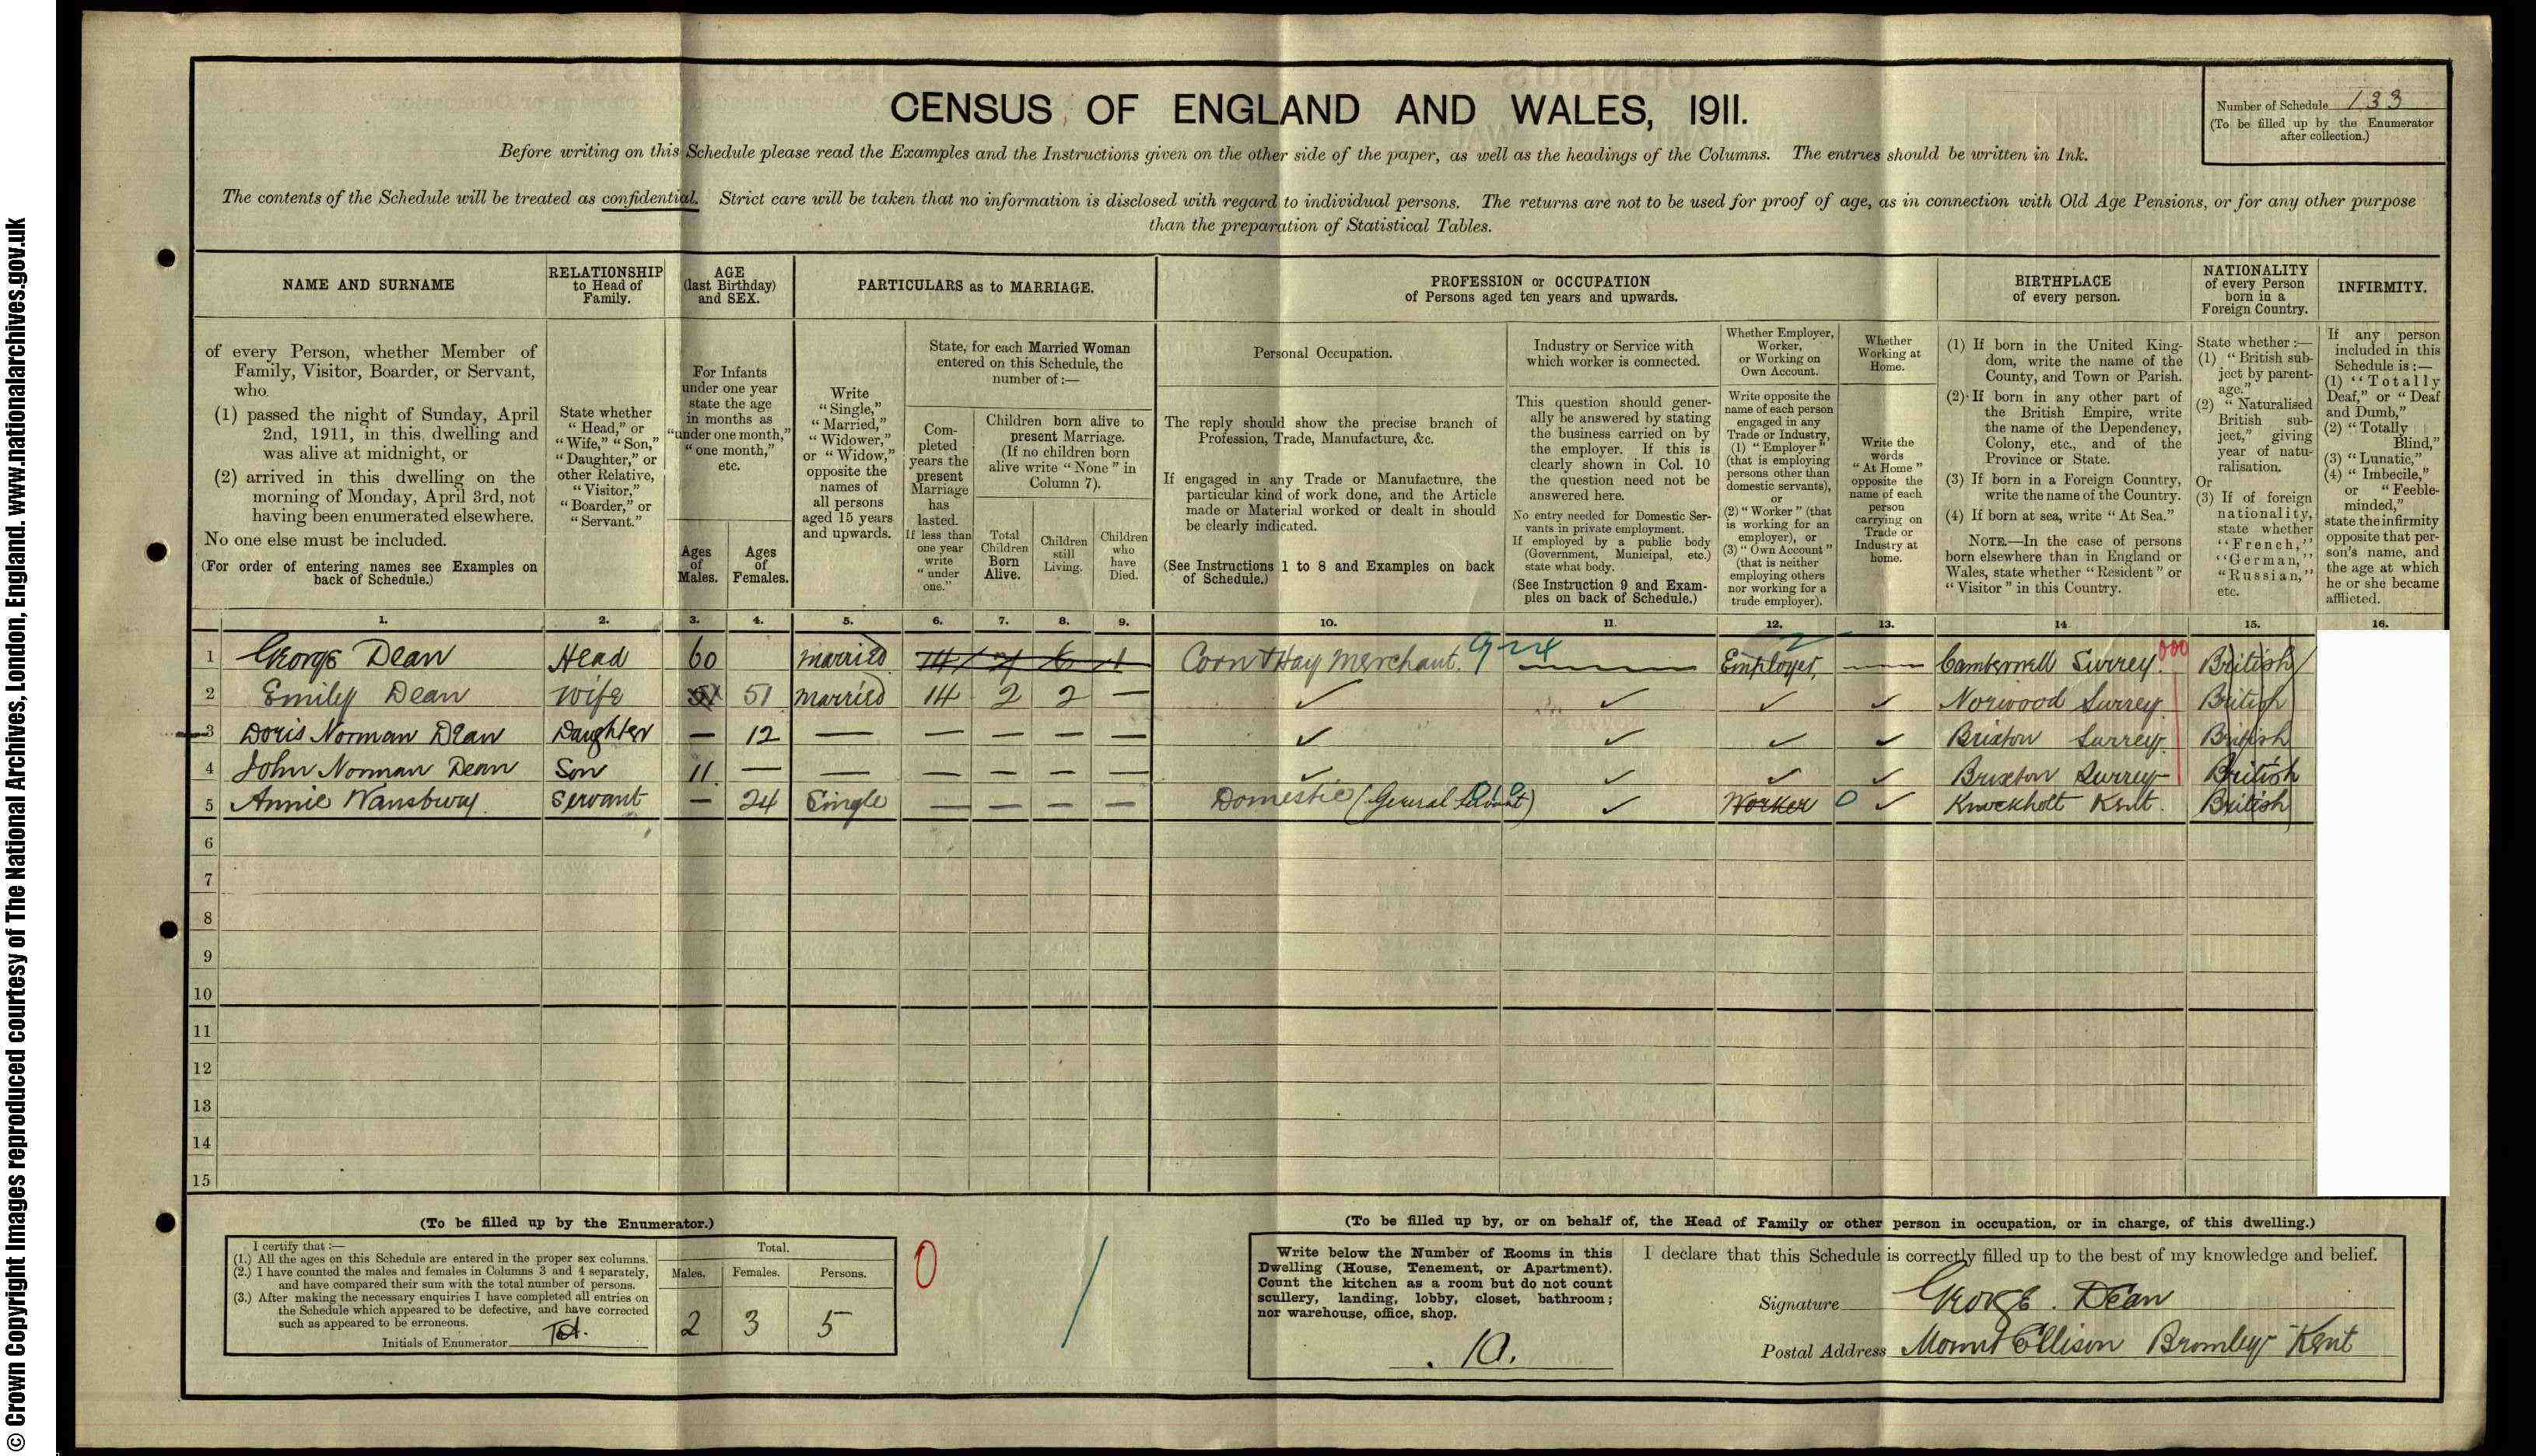 © Crown Copyright Images reproduced courtesy of The National Archives, London, England. www.nationalarchives.gov.uk
CENSUS OF ENGLAND AND WALES, 1911.
Number of Schedule 133
(To be filled up by the Enumerator
after collection.)
Before writing on this Schedule please read the Examples and the Instructions given on the other side of the paper, as well as the headings of the Columns. The entries should be written in Ink.
The contents of the Schedule will be treated as confidential. Strict care will be taken that no information is disclosed with regard to individual persons. The returns are not to be used for proof of age, as in connection with Old Age Pensions, or for any other purpose
than the preparation of Statistical Tables.
NAME AND SURNAME
of every Person, whether Member of
Family, Visitor, Boarder, or Servant,
who
(1) passed the night of Sunday, April
2nd, 1911, in this dwelling and
was alive at midnight, or
(2) arrived in this dwelling on the
morning of Monday, April 3rd, not
having been enumerated elsewhere.
No one else must be included.
(For order of entering names see Examples on
back of Schedule.)
RELATIONSHIP
to Head of
Family.
State whether
"Head," or
"Wife," "Son,"
"Daughter," or
other Relative,
"Visitor,"
"Boarder," or
"Servant."
AGE
(last Birthday)
and SEX.
For Infants
under one year
state the age
in months as
"under one month,"
"one month,"
etc.
Ages
of
Males.
Ages
of
Females.
PARTICULARS as to MARRIAGE.
Write
"Single,"
"Married,"
"Widower,"
or "Widow,"
opposite the
names of
all persons
aged 15 years
and upwards.
State, for each Married Woman
entered on this Schedule, the
number of:—
Com-
pleted
years the
present
Marriage
has
lasted.
If less than
one year
write
"under
one."
Children born alive to
present Marriage.
(If no children born
alive write "None" in
Column 7).
Total
Children
Born
Alive.
Children
still
Living.
Children
who
have
Died.
PROFESSION or OCCUPATION
of Persons aged ten years and upwards.
Personal Occupation.
The reply should show the precise branch of
Profession, Trade, Manufacture, &c.
If engaged in any Trade or Manufacture, the
particular kind of work done, and the Article
made or Material worked or dealt in should
be clearly indicated.
(See Instructions 1 to 8 and Examples on back
of Schedule.)
Industry or Service with
which worker is connected.
This question should gener-
ally be answered by stating
the business carried on by
the employer. If this is
clearly shown in Col. 10
the question need not be
answered here.
No entry needed for Domestic Ser-
vants in private employment.
If employed by a public body
(Government, Municipal, etc.)
state what body.
(See Instruction 9 and Exam-
ples on back of Schedule.)
Whether Employer,
Worker,
or Working on
Own Account.
Write opposite the
name of each person
engaged in any
Trade or Industry,
(1) "Employer"
(that is employing
persons other than
domestic servants),
or
(2) "Worker" (that
is working for an
employer), or
(3) "Own Account"
(that is neither
employing others
nor working for a
trade employer).
Whether
Working at
Home.
Write the
words
"At Home"
opposite the
name of each
person
carrying on
Trade or
Industry at
home.
BIRTHPLACE
of every person.
(1) If born in the United King-
dom, write the name of the
County, and Town or Parish.
(2) If born in any other part of
the British Empire, write
the name of the Dependency,
Colony, etc., and of the
Province or State.
(3) If born in a Foreign Country,
write the name of the Country.
(4) If born at sea, write "At Sea."
NOTE.—In the case of persons
born elsewhere than in England or
Wales, state whether "Resident" or
"Visitor" in this Country.
NATIONALITY
of every Person
born in a
Foreign Country.
State whether:—
(1) "British sub-
ject by parent-
age."
(2) "Naturalised
British sub-
ject," giving
year of natu-
ralisation.
Or
(3) If of foreign
nationality,
state whether
"French,"
"German,"
"Russian,"
etc.
INFIRMITY.
If any person
included in this
Schedule is:—
(1) "Totally
Deaf," or "Deaf
and Dumb,"
(2) "Totally
Blind,"
(3) "Lunatic,"
(4) "Imbecile,"
or "Feeble-
minded,"
state the infirmity
opposite that per-
son's name, and
the age at which
he or she became
afflicted.
1. 2. 3. 4. 5. 6. 7. 8. 9. 10. 11. 12. 13. 14 15. 16.
1 George Dean Head 60 married 14 7 6 1 Corn & Hay Merchant. 924 Employer 2 Camberwell Surrey 000 British
2 Emily Dean Wife 51 51 married 14 2 2 — Norwood Surrey British
3 Doris Norman Dean Daughter — 12 — — — — — Brixton Surrey British
4 John Norman Dean Son 11 — — — — — — Brixton Surrey British
5 Annie Wansbury Servant — 24 Single — — — — Domestic (General Servant) Worker 0 Knockholt Kent. British
6
7
8
9
10
11
12
13
14
15
(To be filled up by the Enumerator.)
I certify that:—
(1.) All the ages on this Schedule are entered in the proper sex columns.
(2.) I have counted the males and females in Columns 3 and 4 separately,
and have compared their sum with the total number of persons.
(3.) After making the necessary enquiries I have completed all entries on
the Schedule which appeared to be defective, and have corrected
such as appeared to be erroneous.
Initials of Enumerator
Total.
Males. Females. Persons.
2 3 5
0
(To be filled up by, or on behalf of, the Head of Family or other person in occupation, or in charge, of this dwelling.)
Write below the Number of Rooms in this
Dwelling (House, Tenement, or Apartment).
Count the kitchen as a room but do not count
scullery, landing, lobby, closet, bathroom;
nor warehouse, office, shop.
10.
I declare that this Schedule is correctly filled up to the best of my knowledge and belief.
Signature George. Dean
Postal Address Mount Ellison Bromley Kent